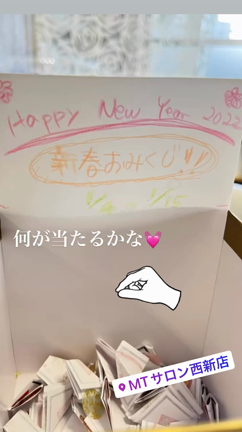 Happy New Year 2022
新春おみくじ!!
1/4 〜 1/15
何が当たるかな💓
MTサロン西新店